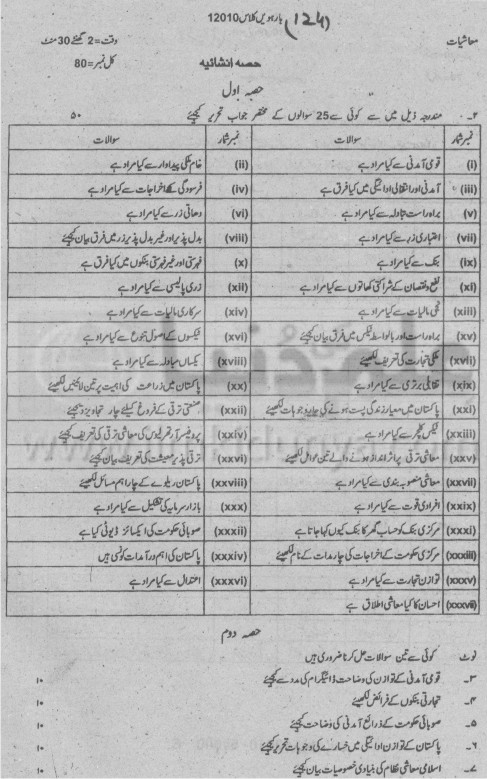 بارہویں کلاس 12010 (124)
معاشیات
وقت=2 گھنٹے30 منٹ
حصہ انشائیہ
کل نمبر=80
حصہ اول
۲۔ مندرجہ ذیل میں سے کوئی سے 25 سوالوں کے مختصر جواب تحریر کیجئے ۵۰
نمبر شمار سوالات نمبر شمار سوالات
(i) قومی آمدنی سے کیا مراد ہے (ii) خام ملکی پیداوار سے کیا مراد ہے
(iii) آمدنی اور انتقالی ادائیگی میں کیا فرق ہے (iv) فرسودگی کے اخراجات سے کیا مراد ہے
(v) براہ راست تبادلہ سے کیا مراد ہے (vi) دھاتی زر سے کیا مراد ہے
(vii) اعتباری زر سے کیا مراد ہے (viii) بدل پذیر اور غیر بدل پذیر زر میں فرق بیان کیجئے
(ix) بنک سے کیا مراد ہے (x) فہرستی اور غیر فہرستی بنکوں میں کیا فرق ہے
(xi) نفع و نقصان کے شراکتی کھاتوں سے کیا مراد ہے (xii) زری پالیسی سے کیا مراد ہے
(xiii) نجی مالیات سے کیا مراد ہے (xiv) سرکاری مالیات سے کیا مراد ہے
(xv) براہ راست اور بالواسطہ ٹیکس میں فرق بیان کیجئے (xvi) ٹیکسوں کے اصول تنوع سے کیا مراد ہے
(xvii) ملکی تجارت کی تعریف لکھیئے (xviii) یکساں مبادلہ سے کیا مراد ہے
(xix) تقابلی برتری سے کیا مراد ہے (xx) پاکستان میں زراعت کی اہمیت پر تین لائینیں لکھیئے
(xxi) پاکستان میں معیار زندگی پست ہونے کی چار وجوہات لکھیئے (xxii) صنعتی ترقی کے فروغ کیلئے چار تجاویز دیجئے
(xxiii) ٹیکس کلچر سے کیا مراد ہے (xxiv) پروفیسر آرتھر لیوس کی معاشی ترقی کی تعریف کیجئے
(xxv) معاشی ترقی پر اثر انداز ہونے والے تین عوامل لکھیئے (xxvi) ترقی پذیر معیشت کی تعریف بیان کیجئے
(xxvii) معاشی منصوبہ بندی سے کیا مراد ہے (xxviii) پاکستان ریلوے کے چار اہم مسائل لکھیئے
(xxix) افرادی قوت سے کیا مراد ہے (xxx) بازار سرمایہ کی تشکیل سے کیا مراد ہے
(xxxi) مرکزی بنک کو حساب گھر کا بنک کیوں کہا جاتا ہے (xxxii) صوبائی حکومت کی ایکسائز ڈیوٹی کیا ہے
(xxxiii) مرکزی حکومت کے اخراجات کی چار مدات کے نام لکھیئے (xxxiv) پاکستان کی اہم درآمدات کونسی ہیں
(xxxv) توازن تجارت سے کیا مراد ہے (xxxvi) اعتدال سے کیا مراد ہے
(xxxvii) احسان کا کیا معاشی اطلاق ہے
حصہ دوم
نوٹ کوئی سے تین سوالات حل کرنا ضروری ہیں
۳۔ قومی آمدنی کے توازن کی وضاحت ڈائیگرام کی مدد سے کیجئے ۱۰
۴۔ تجارتی بنکوں کے فرائض لکھیئے ۱۰
۵۔ صوبائی حکومت کے ذرائع آمدنی کی وضاحت کیجئے ۱۰
۶۔ پاکستان کے توازن ادائیگی میں خسارے کی وجوہات تحریر کیجئے ۱۰
۷۔ اسلامی معاشی نظام کی بنیادی خصوصیات بیان کیجئے ۱۰